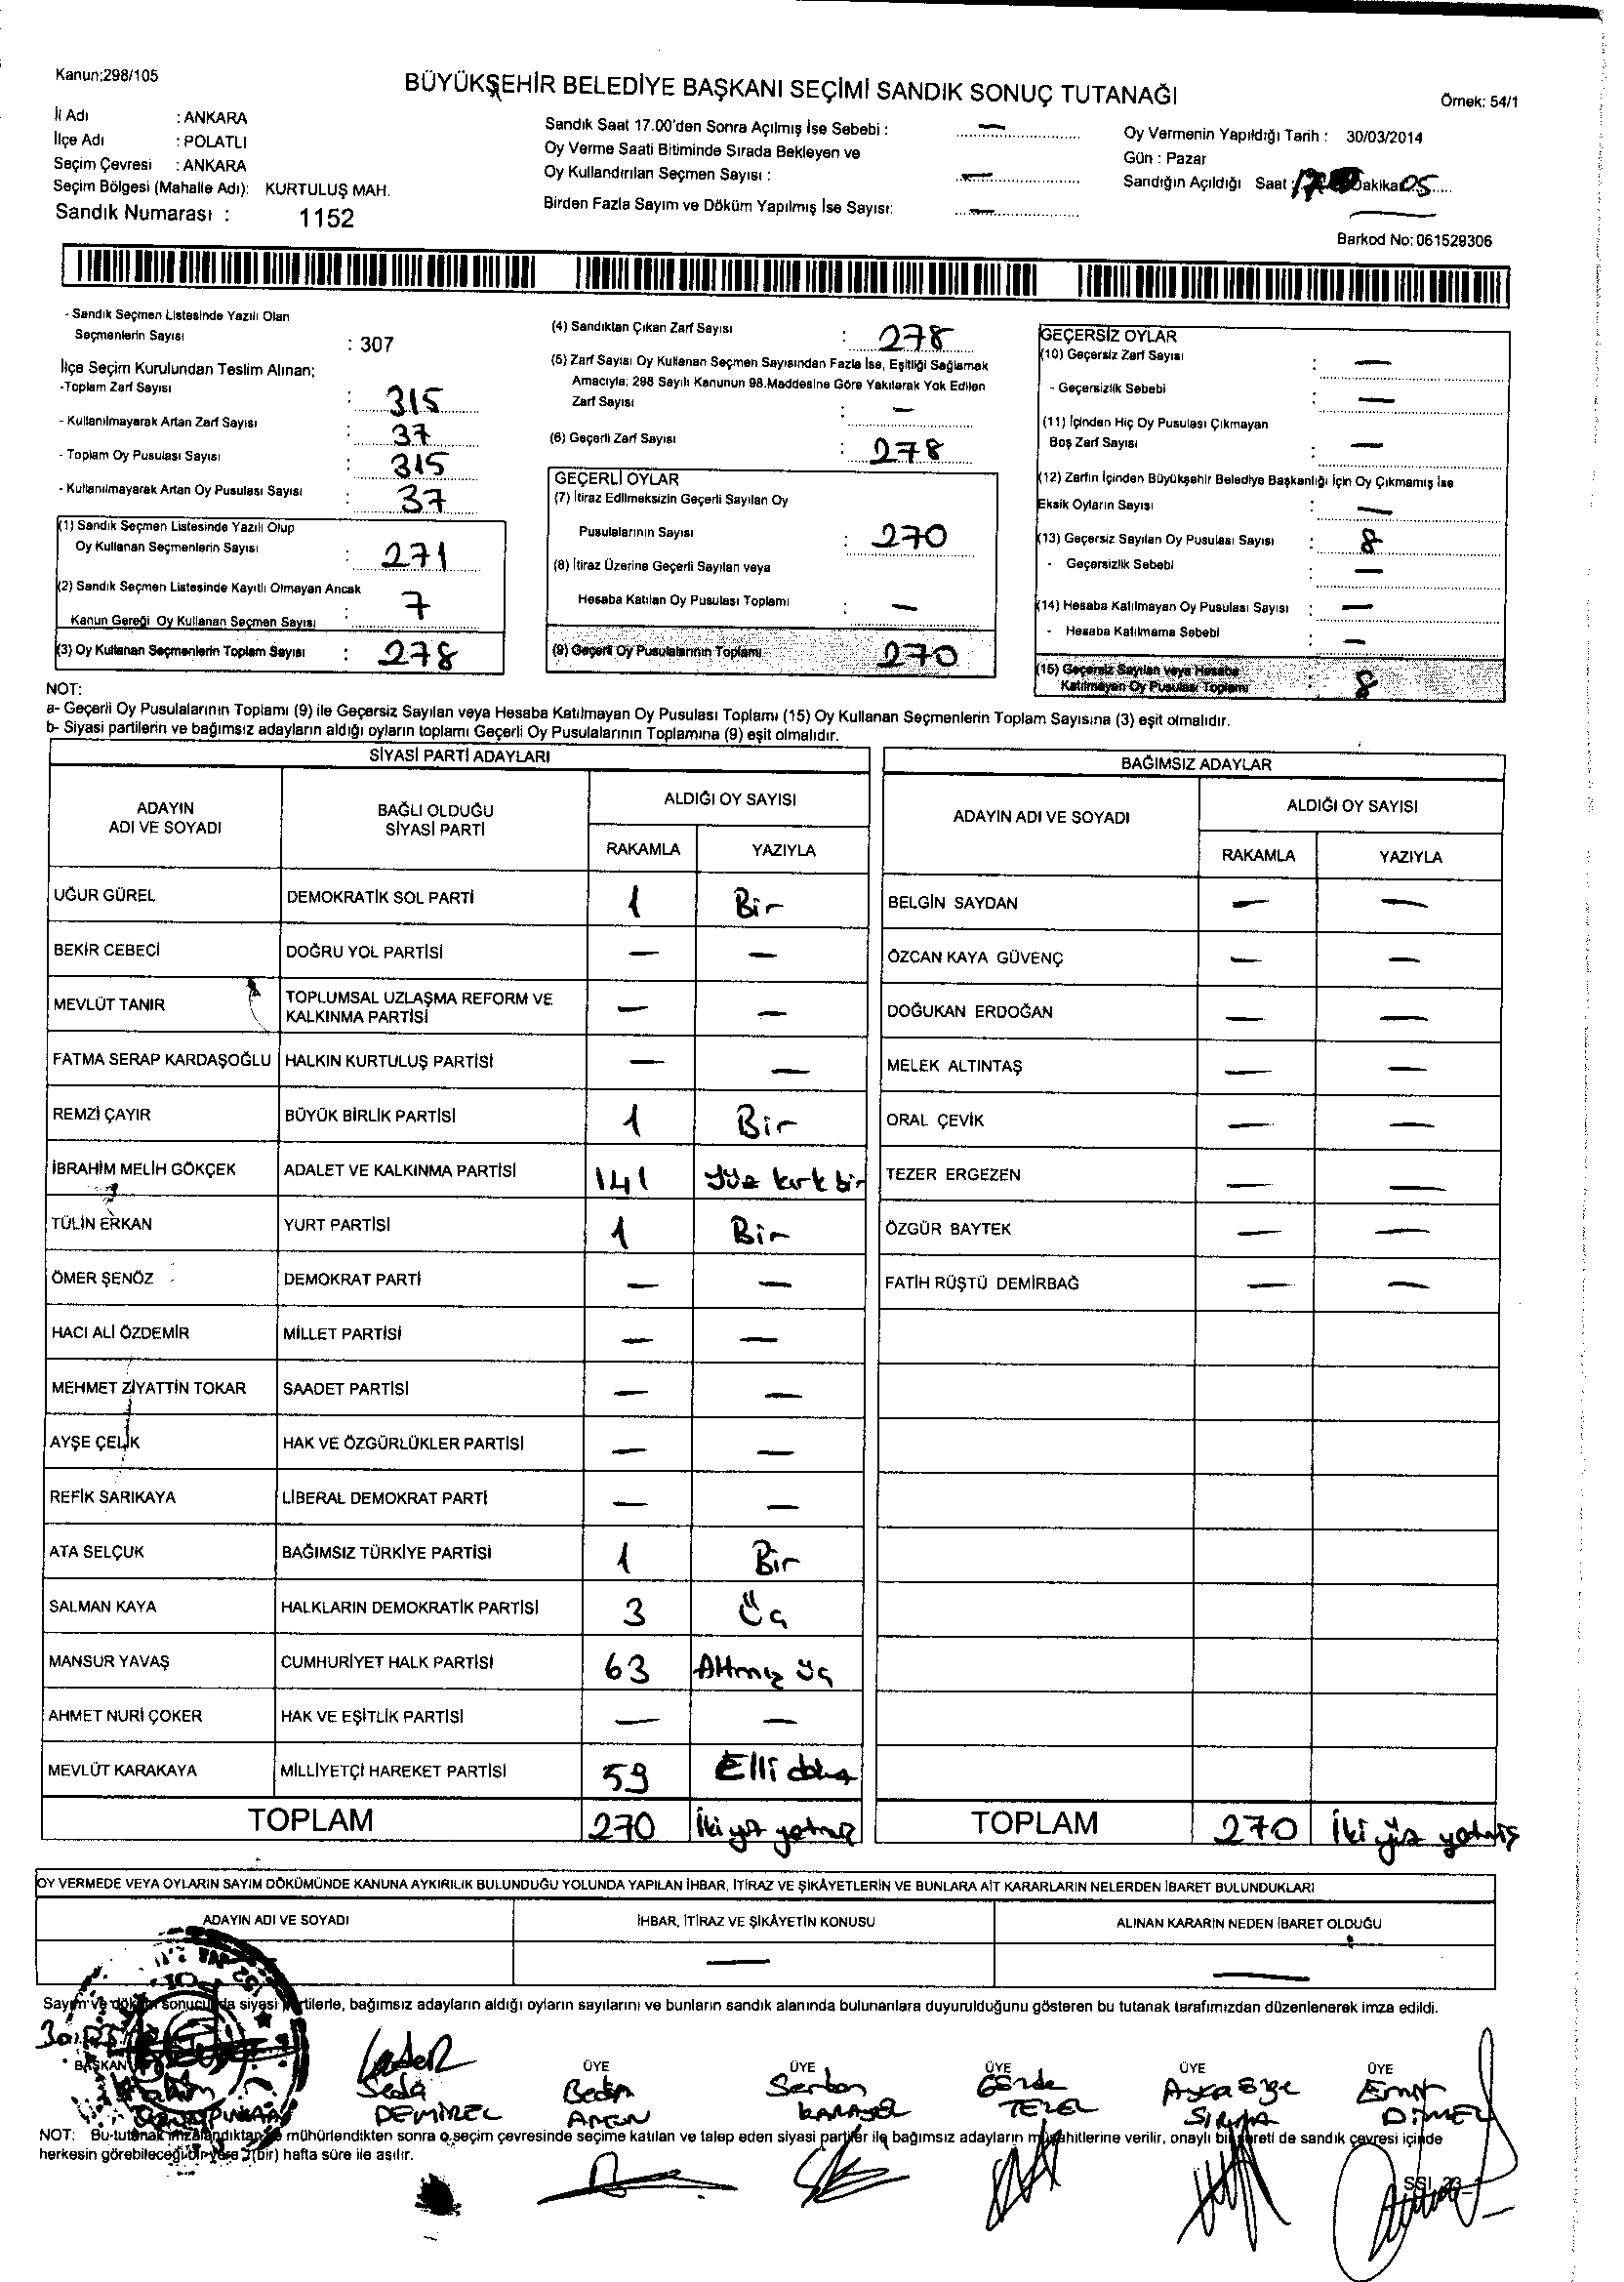 Kanun:298/105
BÜYÜKŞEHİR BELEDİYE BAŞKANI SEÇİMİ SANDIK SONUÇ TUTANAĞI
Örnek: 54/1
İl Adı : ANKARA
İlçe Adı : POLATLI
Seçim Çevresi : ANKARA
Seçim Bölgesi (Mahalle Adı): KURTULUŞ MAH.
Sandık Numarası : 1152
Sandık Saat 17.00'den Sonra Açılmış İse Sebebi : —
Oy Verme Saati Bitiminde Sırada Bekleyen ve
Oy Kullandırılan Seçmen Sayısı : —
Birden Fazla Sayım ve Döküm Yapılmış İse Sayısı: —
Oy Vermenin Yapıldığı Tarih : 30/03/2014
Gün : Pazar
Sandığın Açıldığı Saat : 17 Dakika 05
Barkod No: 061529306
- Sandık Seçmen Listesinde Yazılı Olan
Seçmenlerin Sayısı : 307
İlçe Seçim Kurulundan Teslim Alınan;
-Toplam Zarf Sayısı : 315
- Kullanılmayarak Artan Zarf Sayısı : 37
- Toplam Oy Pusulası Sayısı : 315
- Kullanılmayarak Artan Oy Pusulası Sayısı : 37
(1) Sandık Seçmen Listesinde Yazılı Olup
Oy Kullanan Seçmenlerin Sayısı : 271
(2) Sandık Seçmen Listesinde Kayıtlı Olmayan Ancak
Kanun Gereği Oy Kullanan Seçmen Sayısı : 7
(3) Oy Kullanan Seçmenlerin Toplam Sayısı : 278
(4) Sandıktan Çıkan Zarf Sayısı : 278
(5) Zarf Sayısı Oy Kullanan Seçmen Sayısından Fazla İse, Eşitliği Sağlamak
Amacıyla; 298 Sayılı Kanunun 98.Maddesine Göre Yakılarak Yok Edilen
Zarf Sayısı : —
(6) Geçerli Zarf Sayısı : 278
GEÇERLİ OYLAR
(7) İtiraz Edilmeksizin Geçerli Sayılan Oy
Pusulalarının Sayısı : 270
(8) İtiraz Üzerine Geçerli Sayılan veya
Hesaba Katılan Oy Pusulası Toplamı : —
(9) Geçerli Oy Pusulalarının Toplamı 270
GEÇERSİZ OYLAR
(10) Geçersiz Zarf Sayısı : —
- Geçersizlik Sebebi : —
(11) İçinden Hiç Oy Pusulası Çıkmayan
Boş Zarf Sayısı : —
(12) Zarfın İçinden Büyükşehir Belediye Başkanlığı İçin Oy Çıkmamış İse
Eksik Oyların Sayısı : —
(13) Geçersiz Sayılan Oy Pusulası Sayısı : 8
- Geçersizlik Sebebi : —
(14) Hesaba Katılmayan Oy Pusulası Sayısı : —
- Hesaba Katılmama Sebebi : —
(15) Geçersiz Sayılan veya Hesaba
Katılmayan Oy Pusulası Toplamı : 8
NOT:
a- Geçerli Oy Pusulalarının Toplamı (9) ile Geçersiz Sayılan veya Hesaba Katılmayan Oy Pusulası Toplamı (15) Oy Kullanan Seçmenlerin Toplam Sayısına (3) eşit olmalıdır.
b- Siyasi partilerin ve bağımsız adayların aldığı oyların toplamı Geçerli Oy Pusulalarının Toplamına (9) eşit olmalıdır.
SİYASİ PARTİ ADAYLARI
ADAYIN ADI VE SOYADI
BAĞLI OLDUĞU SİYASİ PARTİ
ALDIĞI OY SAYISI
RAKAMLA YAZIYLA
UĞUR GÜREL DEMOKRATİK SOL PARTİ 1 Bir
BEKİR CEBECİ DOĞRU YOL PARTİSİ — —
MEVLÜT TANIR TOPLUMSAL UZLAŞMA REFORM VE KALKINMA PARTİSİ — —
FATMA SERAP KARDAŞOĞLU HALKIN KURTULUŞ PARTİSİ — —
REMZİ ÇAYIR BÜYÜK BİRLİK PARTİSİ 1 Bir
İBRAHİM MELİH GÖKÇEK ADALET VE KALKINMA PARTİSİ 141 yüz kırk bir
TÜLİN ERKAN YURT PARTİSİ 1 Bir
ÖMER ŞENÖZ DEMOKRAT PARTİ — —
HACI ALİ ÖZDEMİR MİLLET PARTİSİ — —
MEHMET ZİYATTİN TOKAR SAADET PARTİSİ — —
AYŞE ÇELİK HAK VE ÖZGÜRLÜKLER PARTİSİ — —
REFİK SARIKAYA LİBERAL DEMOKRAT PARTİ — —
ATA SELÇUK BAĞIMSIZ TÜRKİYE PARTİSİ 1 Bir
SALMAN KAYA HALKLARIN DEMOKRATİK PARTİSİ 3 Üç
MANSUR YAVAŞ CUMHURİYET HALK PARTİSİ 63 Altmış üç
AHMET NURİ ÇOKER HAK VE EŞİTLİK PARTİSİ — —
MEVLÜT KARAKAYA MİLLİYETÇİ HAREKET PARTİSİ 59 Elli dokuz
TOPLAM 270 İki yüz yetmiş
BAĞIMSIZ ADAYLAR
ADAYIN ADI VE SOYADI
ALDIĞI OY SAYISI
RAKAMLA YAZIYLA
BELGİN SAYDAN — —
ÖZCAN KAYA GÜVENÇ — —
DOĞUKAN ERDOĞAN — —
MELEK ALTINTAŞ — —
ORAL ÇEVİK — —
TEZER ERGEZEN — —
ÖZGÜR BAYTEK — —
FATİH RÜŞTÜ DEMİRBAĞ — —
TOPLAM 270 İki yüz yetmiş
OY VERMEDE VEYA OYLARIN SAYIM DÖKÜMÜNDE KANUNA AYKIRILIK BULUNDUĞU YOLUNDA YAPILAN İHBAR, İTİRAZ VE ŞİKÂYETLERİN VE BUNLARA AİT KARARLARIN NELERDEN İBARET BULUNDUKLARI
ADAYIN ADI VE SOYADI
İHBAR, İTİRAZ VE ŞİKÂYETİN KONUSU
ALINAN KARARIN NEDEN İBARET OLDUĞU
— —
Sayım ve döküm sonucunda siyasi partilerle, bağımsız adayların aldığı oyların sayılarını ve bunların sandık alanında bulunanlara duyurulduğunu gösteren bu tutanak tarafımızdan düzenlenerek imza edildi.
BAŞKAN ÜYE ÜYE ÜYE ÜYE ÜYE
Seda Serkan Gözde Emir
DEMİREL KARAYEL TEZEL
NOT: Bu tutanak imzalandıktan ve mühürlendikten sonra o seçim çevresinde seçime katılan ve talep eden siyasi partiler ile bağımsız adayların müşahitlerine verilir, onaylı bir sureti de sandık çevresi içinde
herkesin görebileceği bir yere 1(bir) hafta süre ile asılır.